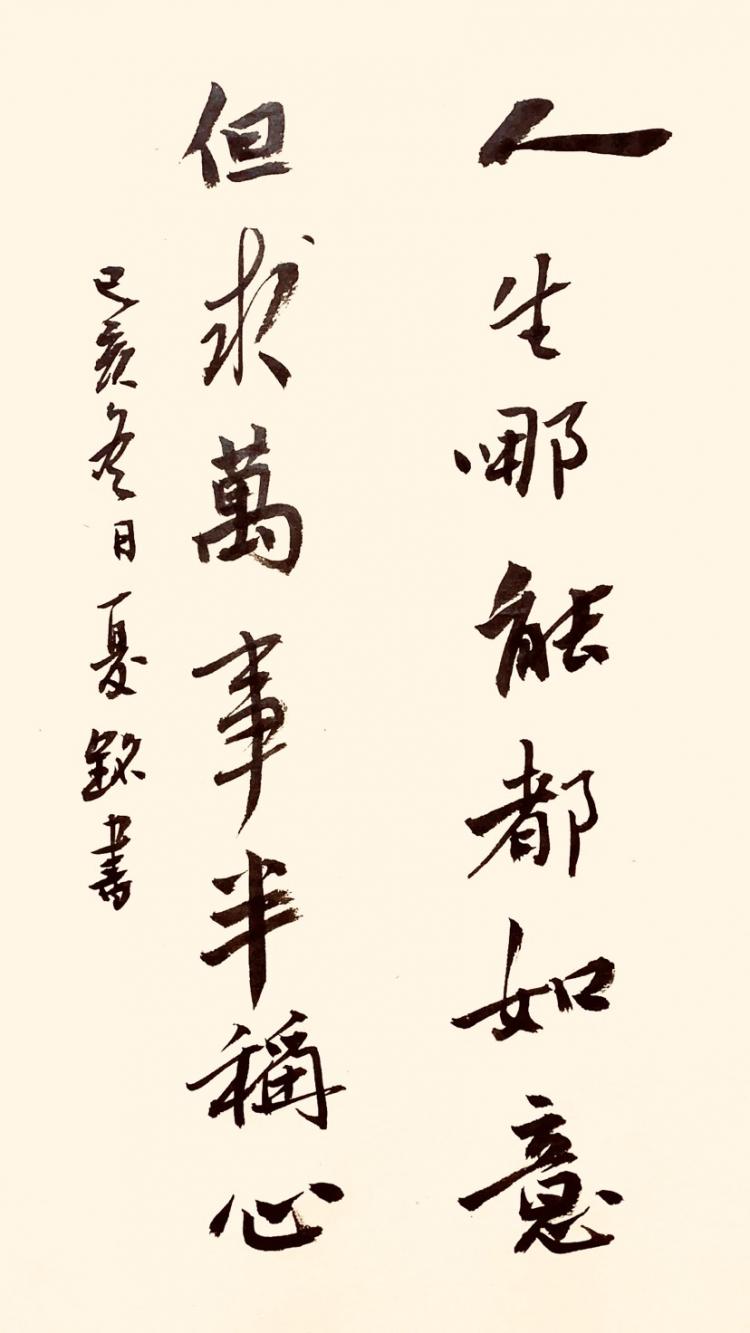 人生哪能都如意
但求萬事半稱心
己亥冬日夏銘書